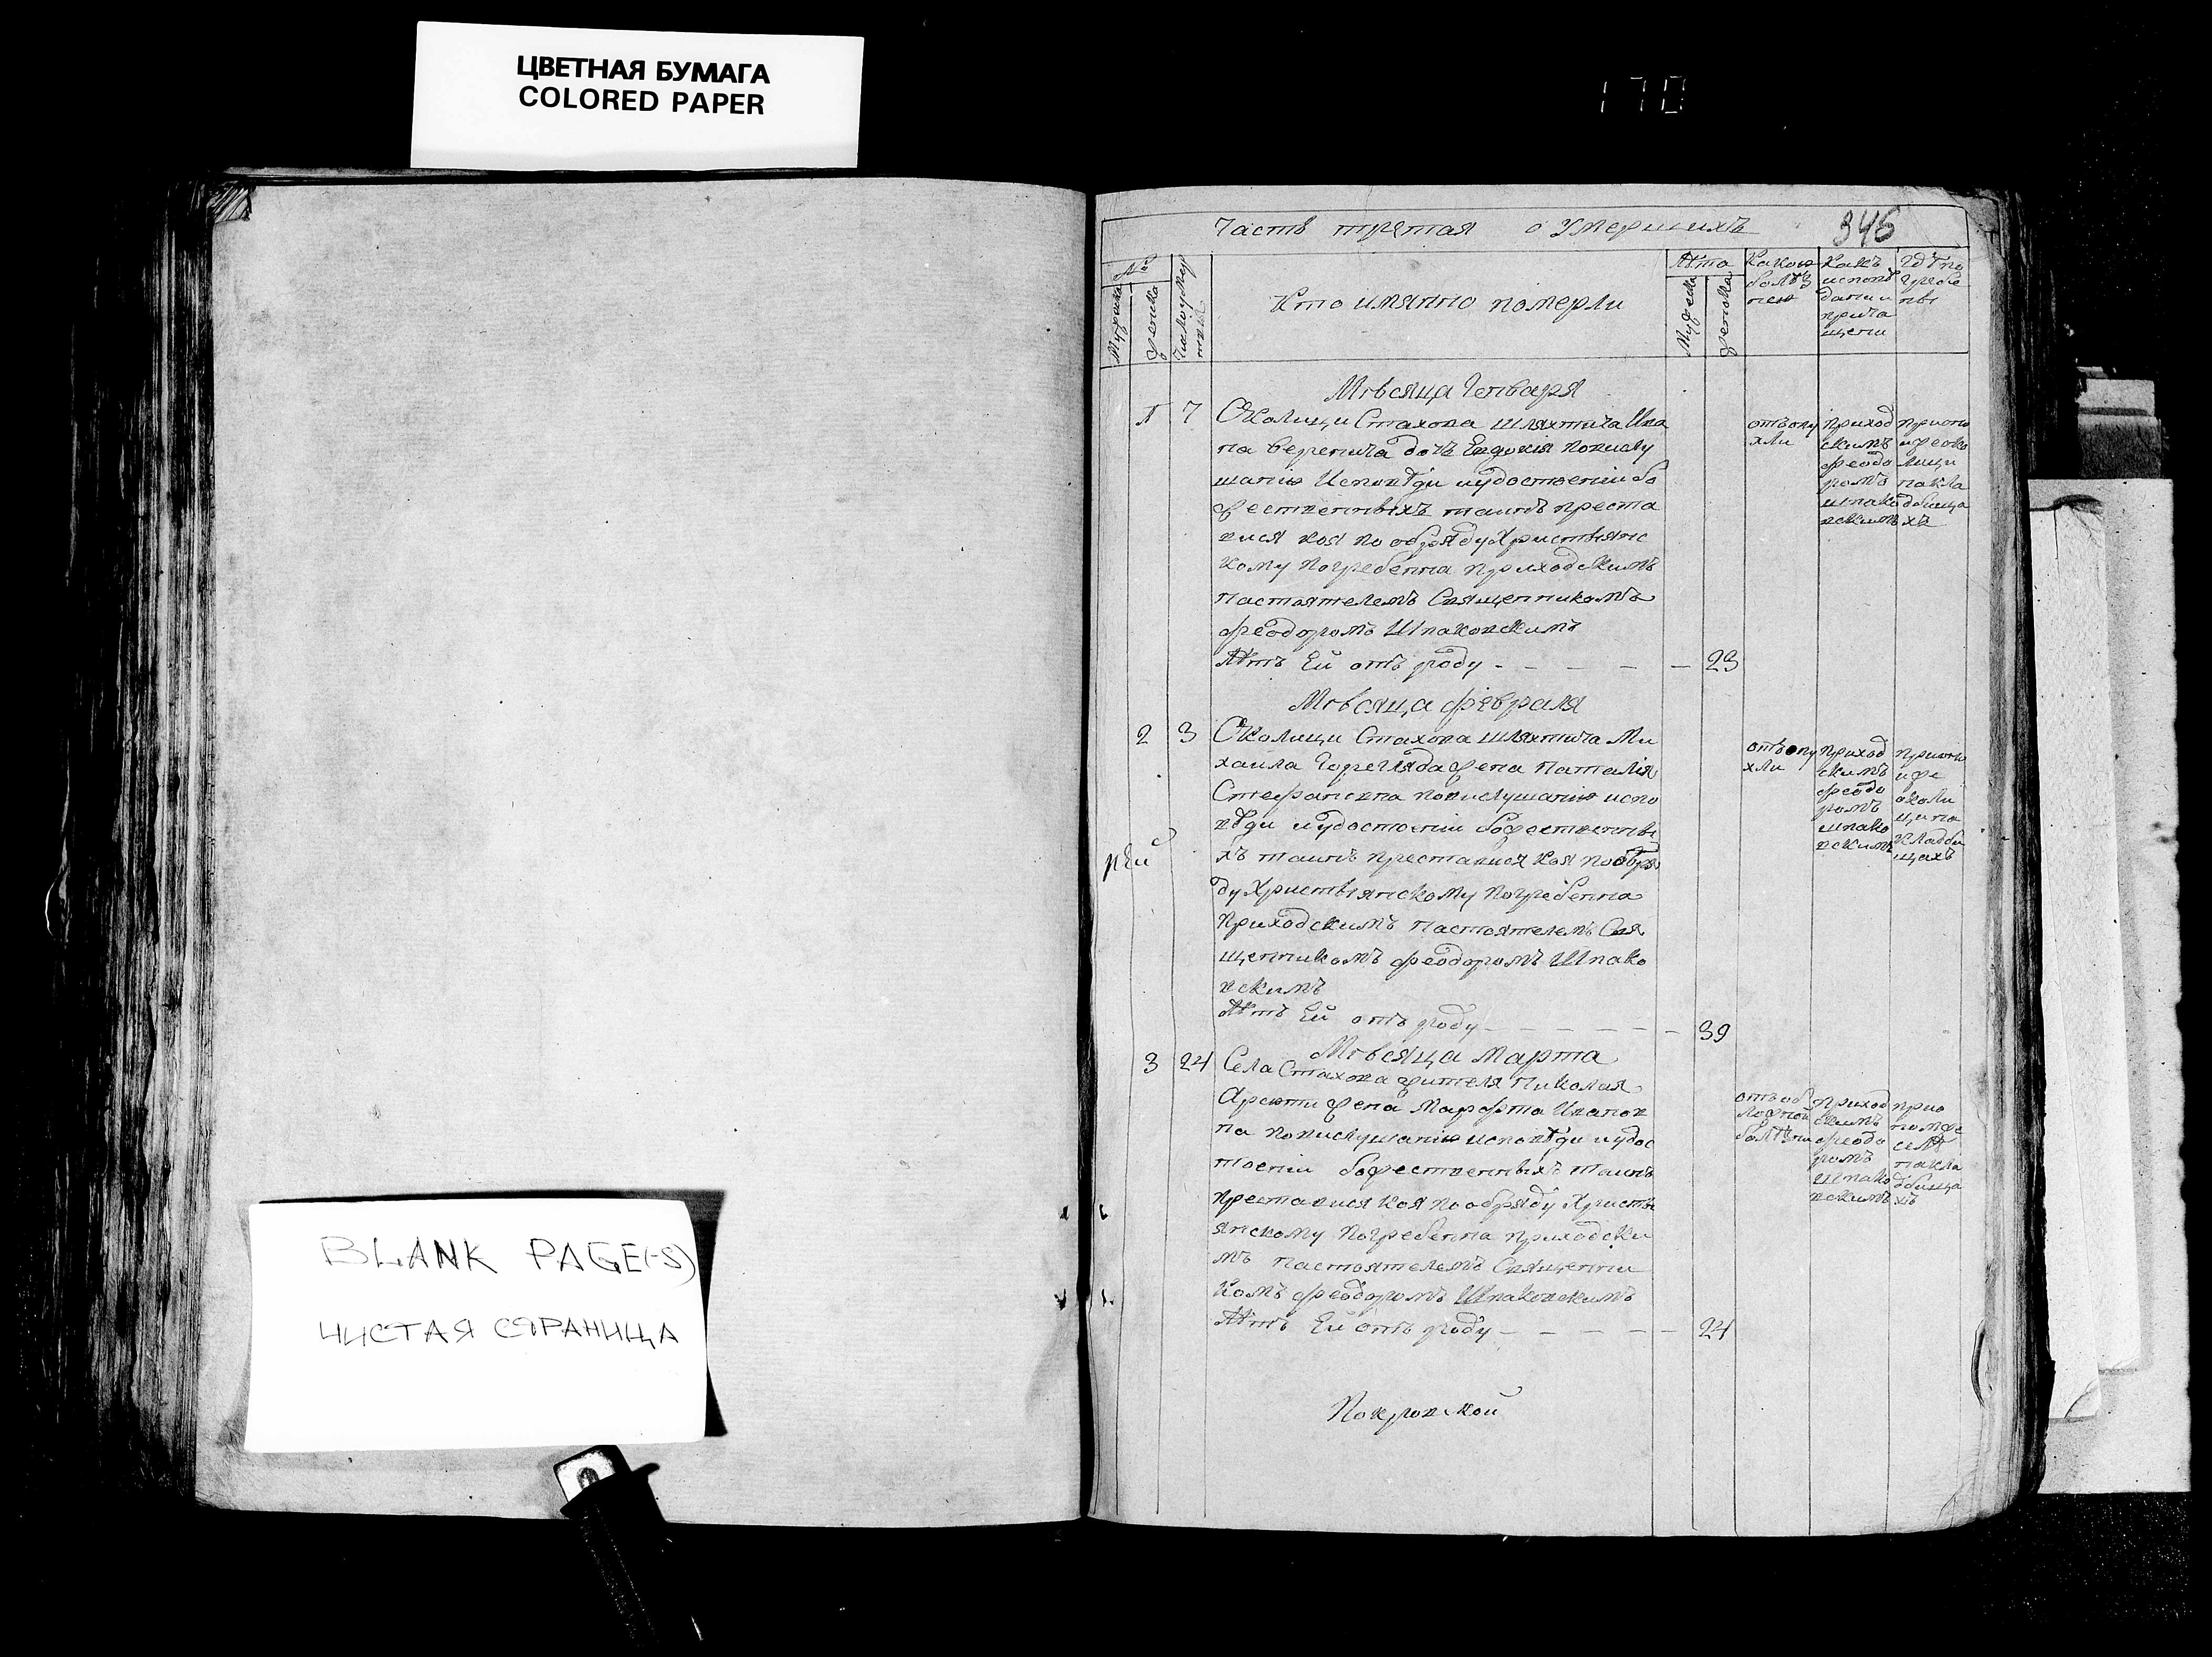 ЦВЕТНАЯ БУМАГА
COLORED PAPER
170
BLANK PAGE(-S)
ЧИСТАЯ СТРАНИЦА
Часть третая о Умершихъ 346
№
Мужска
женска
Число умер
Кто имянно померли
Лѣта
Мужска
женска
Какою
болѣз
нею
Какъ
исповѣ
даны и
прича
щены
Гдѣ по
гребе
ны
Мѣсяца Генваря
1 7 Околицы Стахова шляхтича Ива
на Веренича дочь Евдокія по выслу
шанію Исповѣди иудостоеніи бо
жественныхъ таинъ преста
вися коя по обряду Христыянс
кому погребенна приходскимъ
настоятелемъ Священникомъ
Феодоромъ Шпаковскимъ
Лѣтъ Ей отъ роду - - - - - 23
отъ опу
хли
приход
скимъ
Феодо
ромъ
Шпако
вскимъ
при он
ой же око
лицы
на кла
дбища
хъ
Мѣсяца Февраля
2 3 Околицы Стахова шляхтича Ми
хаила Горегляда жена Наталія
Стефановна по выслушанію испо
вѣди иудостоеніи божественны
хъ таинъ преставися коя по обря
ду Христыянскому погребенна
Приходскимъ настоятелемъ Свя
щенникомъ Феодоромъ Шпако
вскимъ
Лѣтъ Ей отъ роду - - - - - 39
отъ опу
хли
приход
скимъ
Феодо
ромъ
Шпако
вскимъ
при он
ой же
околи
цы на
кладби
щахъ
рЕй
Мѣсяца Марта
3 24 Села Стахова жителя Николая
жена Марфта Иванов
на по выслушанію исповѣди иудос
тоеніи божественныхъ таинъ
преставися коя по обряду Христы
янскому погребенна приходски
мъ настоятелемъ Священни
комъ Феодоромъ Шпаковскимъ
Лѣтъ Ей отъ роду - - - - - 24
отъ об
ложной
болѣзни
приход
скимъ
Феодо
ромъ
Шпако
вскимъ
при о
номъ же
селѣ
на кла
дбища
хъ
Покровской